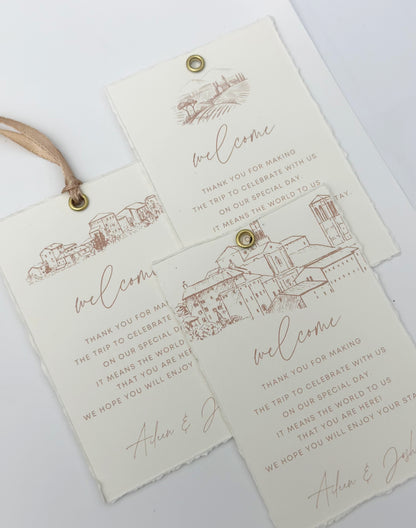 welcome
THANK YOU FOR MAKING
THE TRIP TO CELEBRATE WITH US
ON OUR SPECIAL DAY.
IT MEANS THE WORLD TO US
TAY.
welcome
THANK YOU FOR MAKING
THE TRIP TO CELEBRATE
ON OUR SPECIAL DAY.
IT MEANS THE WORLD
THAT YOU ARE HERE
WE HOPE YOU WILL ENJOY
Aileen & Josh
welcome
THANK YOU FOR MAKING
THE TRIP TO CELEBRATE WITH US
ON OUR SPECIAL DAY.
IT MEANS THE WORLD TO US
THAT YOU ARE HERE!
WE HOPE YOU WILL ENJOY YOUR STA
Aileen & Josh